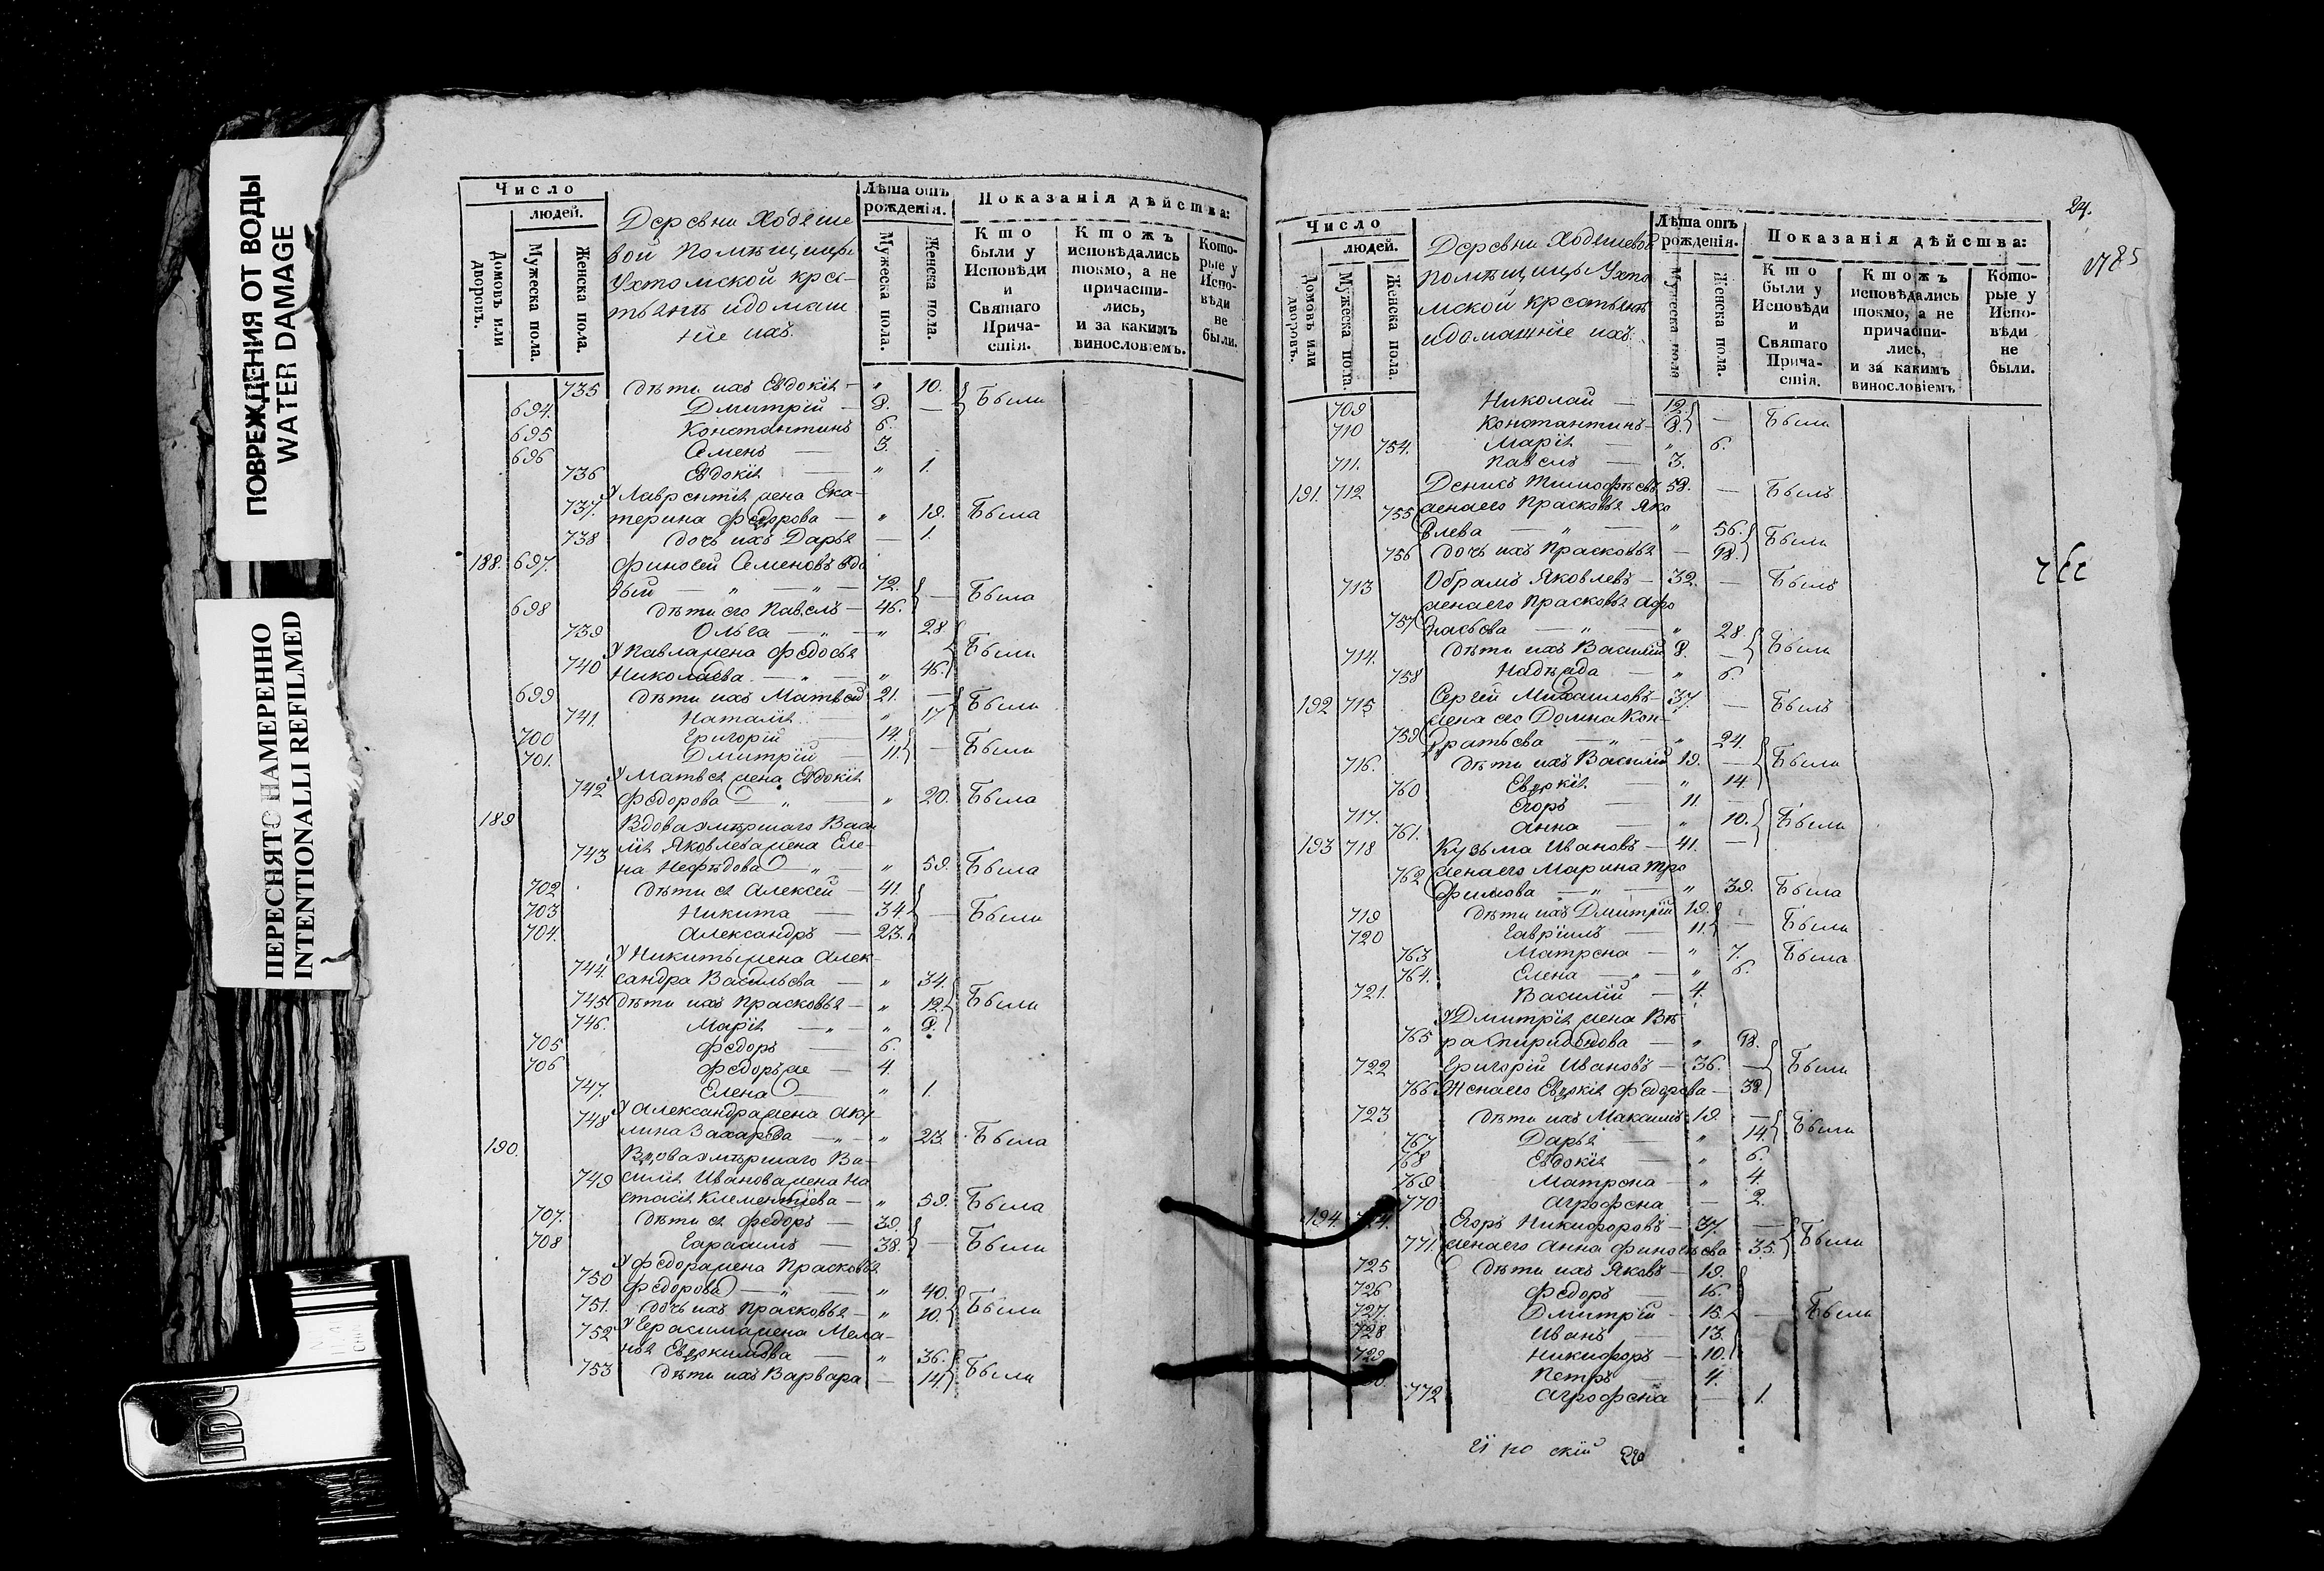 ПОВРЕЖДЕНИЯ ОТ ВОДЫ
WATER DAMAGE
ПЕРЕСНЯТО НАМЕРЕННО
INTENTIONALLI REFILMED
Число
людей.
Домовъ или дворовъ.
Мужеска пола.
Женска пола.
Деревни Ходяше
вой Помѣщицы
Ухтомской кресь
тьянъ идомаш
ніе ихъ.
Лѣта отъ рожденія.
Мужеска пола.
Женска пола.
Показанія дѣйства:
Кто были у Исповѣди и Святаго Причастія.
Ктожъ исповѣдались токмо, а не причастились, и за какимъ винословіемъ.
Которые у Исповѣди не были.
735 дѣти ихъ Евдокія — " 10. Были
694. Дмитрій — 8. —
695 Константинъ 6.
696 Семенъ — 3.
736 Евдокія — " 1.
У Лаврентія жена Ека-
737. терина Федорова — " 19. Была
738 дочь ихъ Дарья — 1.
188. 697. Финогей Семеновъ вдо
вый — " — " — 72. Была
698 дѣти его Павелъ — 46.
739 Ольга — " — " 28
У Павла жена Федосья Были
740 Николаева — " — " 46.
699 дѣти ихъ Матвей 21. — Были
741. Наталія — " 17
700 Григорій — 14. — Были
701. Дмитрій — 11.
У Матвея жена Евдокія
742 Федорова — " — " 20. Была
189 Вдова умершаго Васи
лія Яковлева жена Еле-
743 на Нефедова — " — " 59. Была
702 дѣти ея Алексей — 41.
703 Никита — 34. — Были
704. Александръ — 23.
У Никиты жена Алек-
744. сандра Васильева — " 34.
745 дѣти ихъ Прасковья — " 12. Были
746. Марія — " — " 8.
705 Федоръ — 6.
706 Федоръ же — 4.
747. Елена — " 1.
У Александра жена Аку
748 лина Захарова — " — " 23. Была
190. Вдова умершаго Ва-
силія Иванова жена На
749 стасія Клементіева — " 59. Была
707. дѣти ея Федоръ — 39.
708 Гарасимъ — 38. — Были
У Федора жена Прасковья
750 Федорова — " — " 40.
751. дочь ихъ Прасковья — " 10. Были
752 У Герасима жена Мела-
нья Евдокимова — " 36.
753 дѣти ихъ Варвара — 14. Были
24.
1785
Число
людей.
Домовъ или дворовъ.
Мужеска пола.
Женска пола.
Деревни Ходяшевой
помѣщицы Ухто
мской крестьянъ
идомашніе ихъ.
Лѣта отъ рожденія.
Мужеска пола
Женска пола.
Показанія дѣйства:
Кто были у Исповѣди и Святаго Причастія.
Ктожъ исповѣдались токмо, а не причастились, и за какимъ винословіемъ
Которые у Исповѣди не были.
709 Николай — 12. — Были
710 Константинъ — 8.
754. Марія — " 6.
711. Павелъ — 3.
191. 712 Денисъ Тимофѣевъ 58. — Былъ
755 жена его Прасковья Яко
влева — " — " 56. Были
756 дочь ихъ Прасковья — 18.
713 Обрамъ Яковлевъ — 32. — Былъ
жена его Прасковья Афо
757 насьева — " — " 28. Были
714. дѣти ихъ Василій 8. —
758 Надежда — " 6
192 715 Сергей Михаиловъ — 37. — Былъ
жена его Домна Кон-
759 дратьева — " — " 24.
716. дѣти ихъ Василій 19. — Были
760 Евдокія — " 14.
717. Егоръ — 11. —
761. Анна — " 10. Были
193 718 Кузьма Ивановъ — 41. —
762 жена его Марина Тро
фимова — " — " 39. Была
719 дѣти ихъ Дмитрій 19.
720 Гавріилъ — 11. — Были
763 Матрена — " 7. Была
764. Елена — " — " 6.
721. Василій — 4.
У Дмитрія жена Вѣ
765 ра Спиридонова — " 18.
722 Григорій Ивановъ — 36. — Были
766 Жена его Евдокія Федорова — 38.
723 дѣти ихъ Максимъ 19. —
767 Дарья — " 14. Были
768 Евдокія — " 6.
769 Матрена — " 4.
770 Агрофена — 2.
194. Егоръ Никифоровъ — 37. —
771. жена его Анна Финогеева 35. Были
725 дѣти ихъ Яковъ — 19.
726 Федоръ — 16.
727. Дмитрій — 15. — Были
728 Иванъ — 13.
729 Никифоръ — 10.
Петръ — 4.
772 Агрофена — 1.